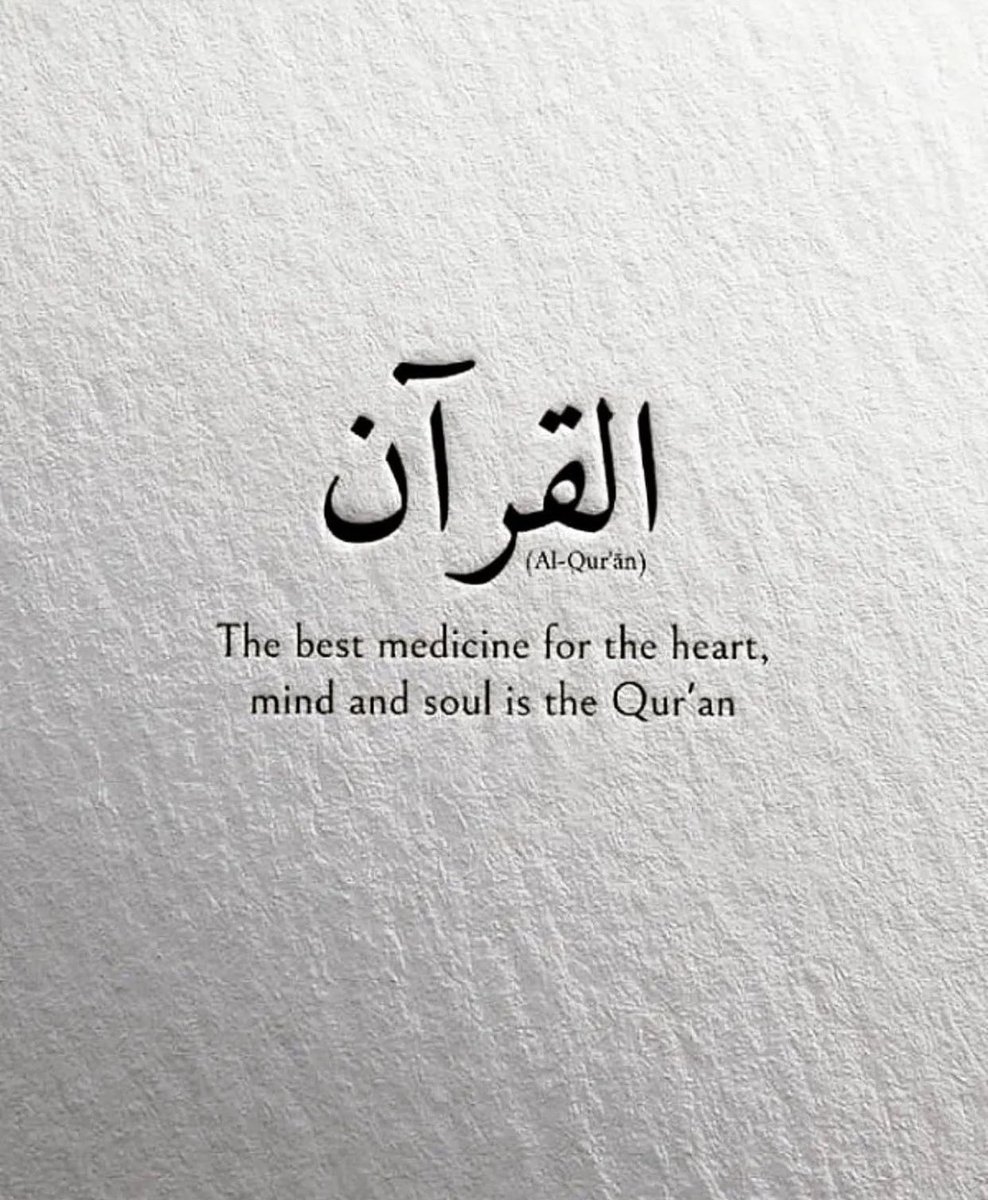 القرآن
(Al-Qur'ān)
The best medicine for the heart,
mind and soul is the Qur'an